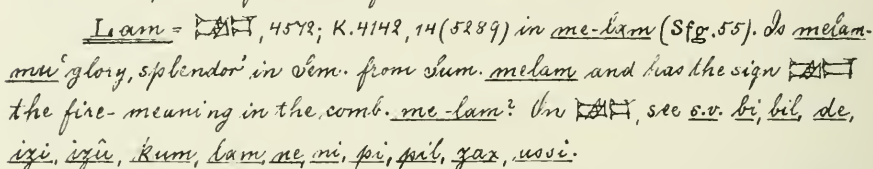 Lam = 𒉈, 4572; K.4142, 14 (5289) in me-lam (Sfg. 55). Is melam-
mu 'glory, splendor' in Sem. from Šum. melam and has the sign 𒉈
the fire-meaning in the comb. me-lam? On 𒉈, see s.v. bi, bil, de,
izi, izû, kum, lam, ne, ni, pi, pil, zax, ussi.